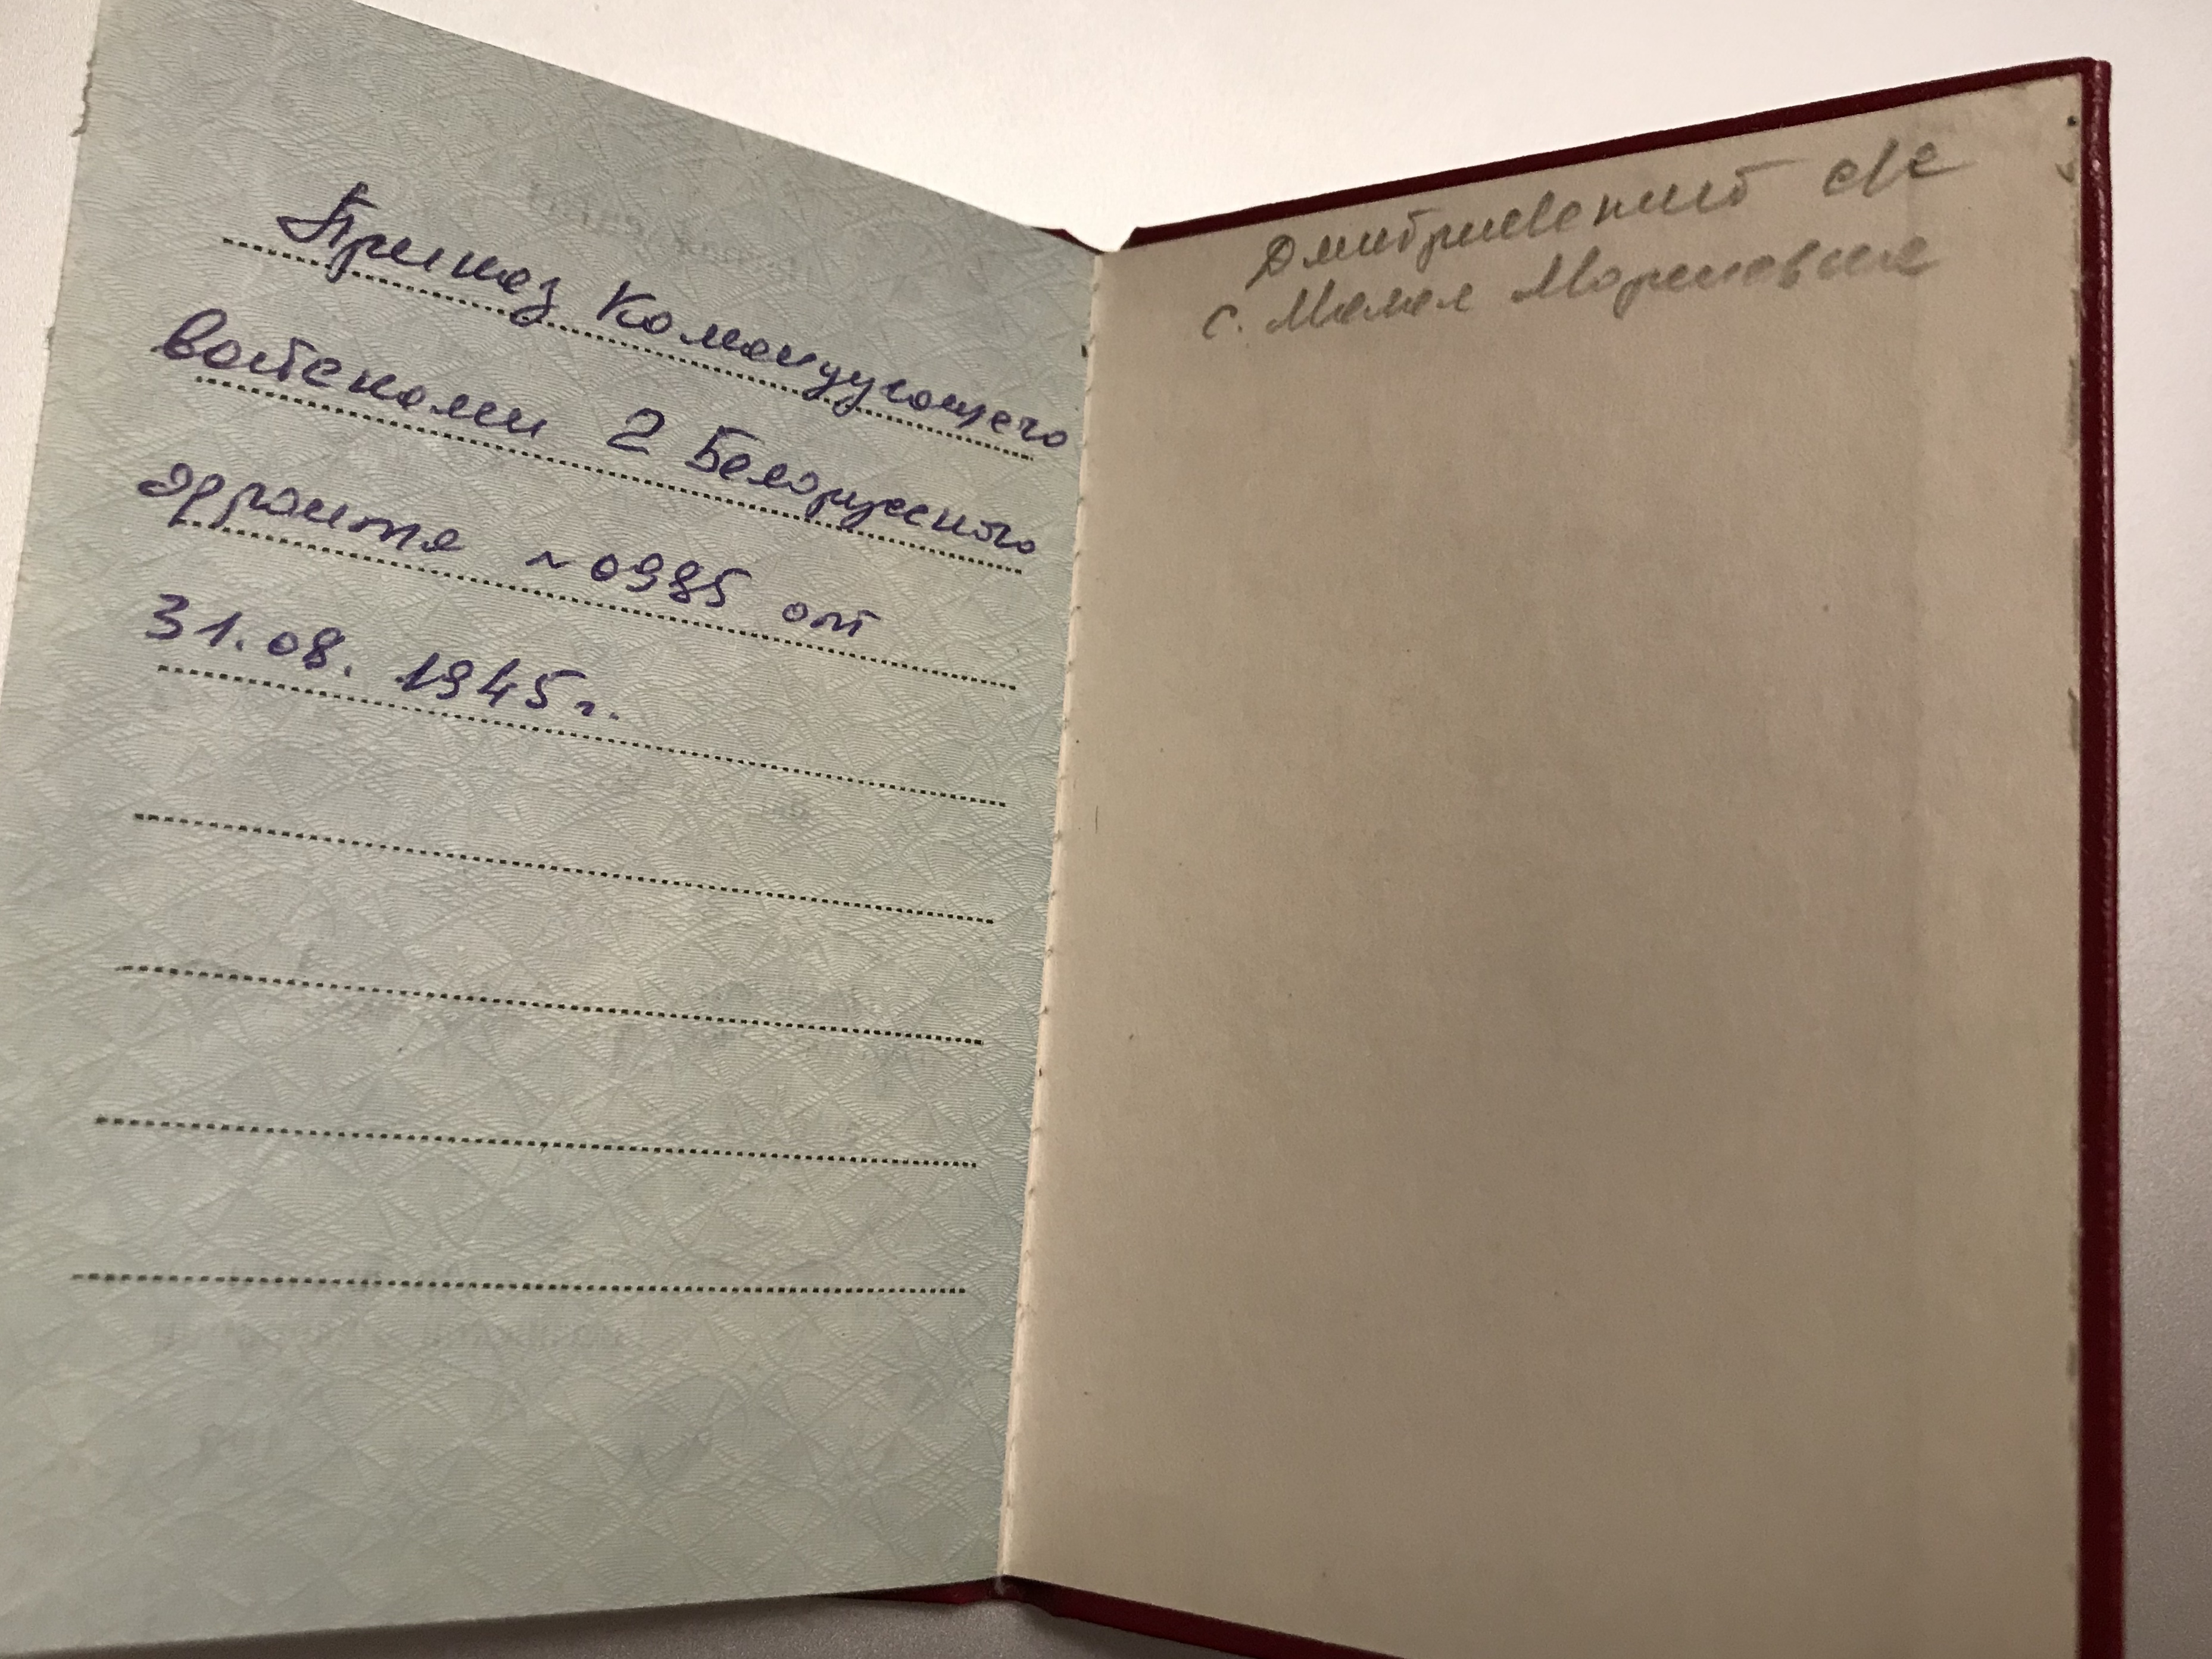 Приказ Командующего
войсками 2 Белорусского
фронта № 0985 от
31.08.1945 г.
Дмитриевский с/с
с. Малая Мариновка